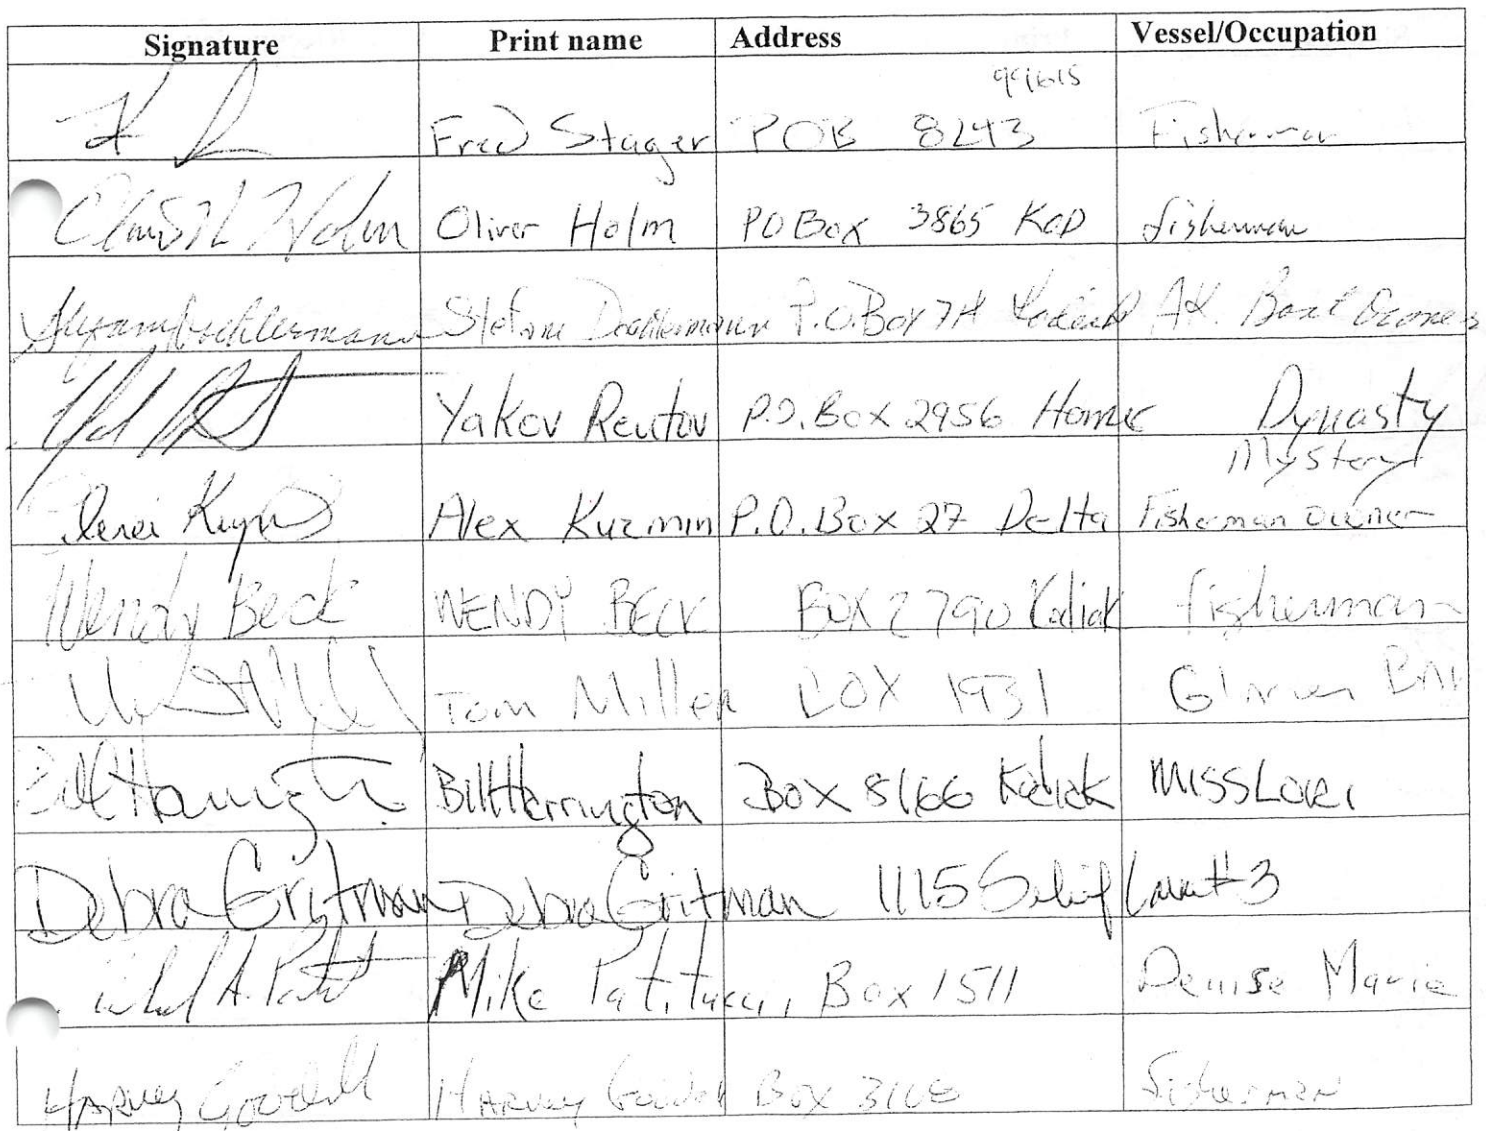 Signature Print name Address Vessel/Occupation
99615
Fred Stager POB 8243 Fisherman
Holm Oliver Holm PO Box 3865 KOD fisherman
Stefanie P.O. Box 74 Kodiak AK. Boat Owners
Yakov Reutov P.O. Box 2956 Homer Dynasty
Mystery
Alex Kuzmin P.O. Box 27 Delta Fisherman owner
Wendy Beck WENDY BECK BOX 2790 Kodiak fisherman
Tom Miller BOX 1931
Bill Harrington Bill Harrington Box 8166 Kodiak MISS LORI
Debra Gritman Debra Gritman 1115 #3
A. Mike Patitucci, Box 1511 Denise Marie
HARVEY Goodell HARVEY Goodell BOX fisherman